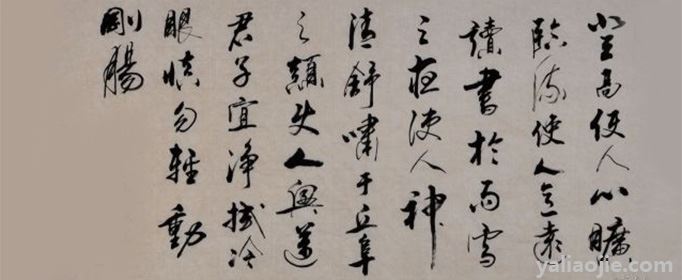 登高使人心曠
臨流使人意遠
讀書於雨雪
之夜使人神
清舒嘯于丘阜
之顛使人興邁
君子宜淨拭冷
眼慎勿輕動
剛腸
yaliaojie.com